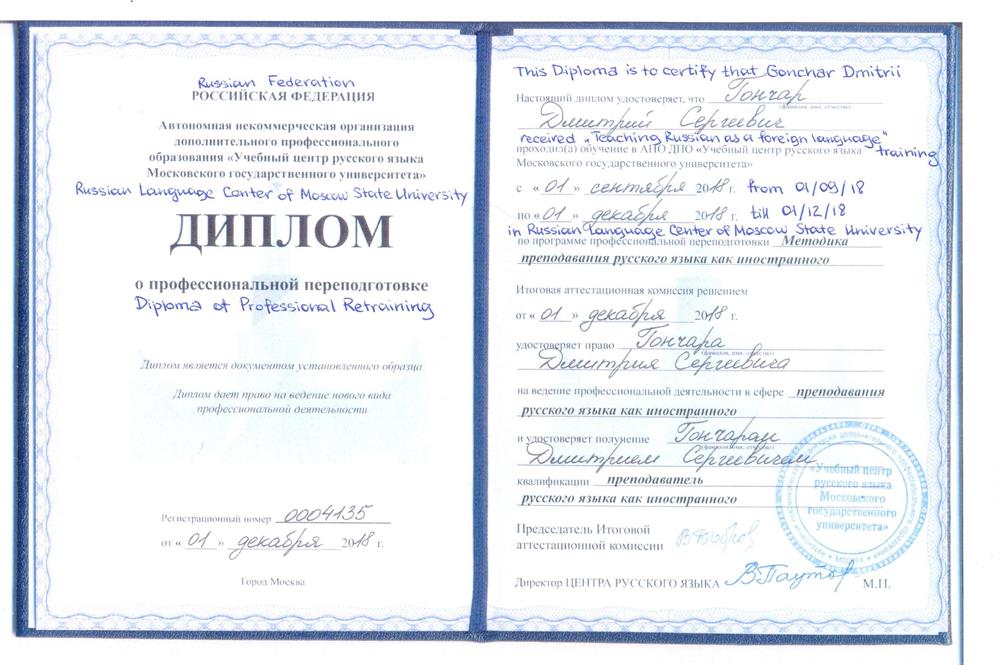 Russian Federation
РОССИЙСКАЯ ФЕДЕРАЦИЯ
Автономная некоммерческая организация
дополнительного профессионального
образования «Учебный центр русского языка
Московского государственного университета»
Russian Language Center of Moscow State University
ДИПЛОМ
о профессиональной переподготовке
Diploma of Professional Retraining
Диплом является документом установленного образца
Диплом дает право на ведение нового вида
профессиональной деятельности
Регистрационный номер 0004135
от « 01 » декабря 2018 г.
Город Москва
This Diploma is to certify that Gonchar Dmitrii
Настоящий диплом удостоверяет, что Гончар
(фамилия, имя, отчество)
Дмитрий Сергеевич
received „Teaching Russian as a foreign language" training
проходил(а) обучение в АНО ДПО «Учебный центр русского языка
Московского государственного университета»
с « 01 » сентября 2018 г. from 01/09/18
по « 01 » декабря 2018 г. till 01/12/18
in Russian Language Center of Moscow State University
по программе профессиональной переподготовки Методика
преподавания русского языка как иностранного
Итоговая аттестационная комиссия решением
от « 01 » декабря 2018 г.
удостоверяет право Гончара
(фамилия, имя, отчество)
Дмитрия Сергеевича
на ведение профессиональной деятельности в сфере преподавания
русского языка как иностранного
и удостоверяет получение Гончаром
(фамилия, имя, отчество)
Дмитрием Сергеевичем
квалификации преподаватель
русского языка как иностранного
Председатель Итоговой
аттестационной комиссии
Директор ЦЕНТРА РУССКОГО ЯЗЫКА
М.П.
«Учебный центр
русского языка
Московского
государственного
университета»
МОСКВА